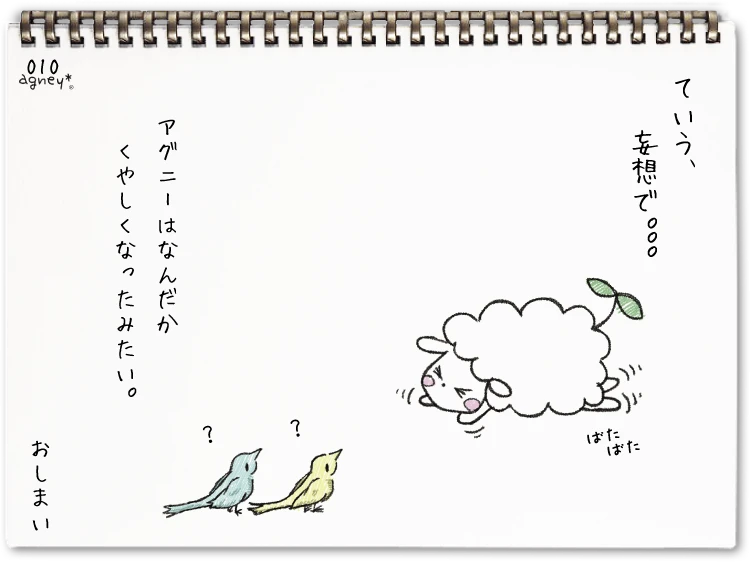 010
agney*®
ていう、
妄想で。。。
ばた
ばた
?
?
アグニーはなんだか
くやしくなったみたい。
おしまい